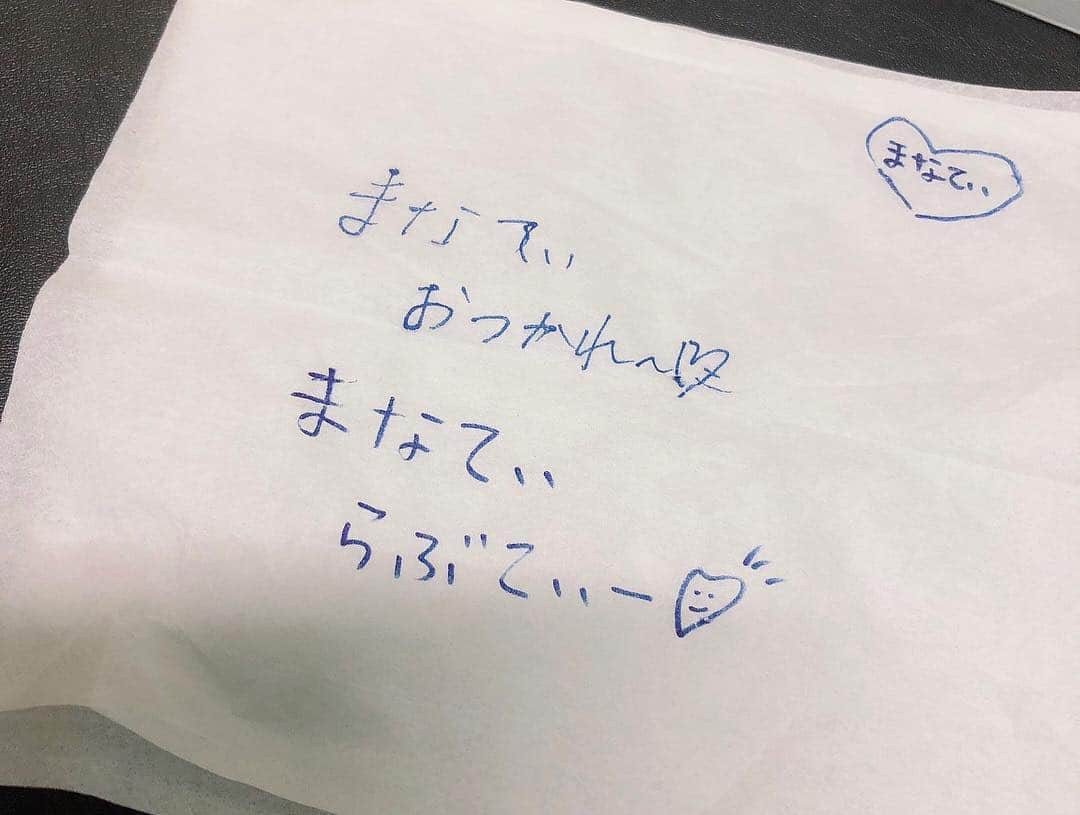 まなてぃ
まなてぃ
おつかれ〜♡
まなてぃ
らぶてぃー